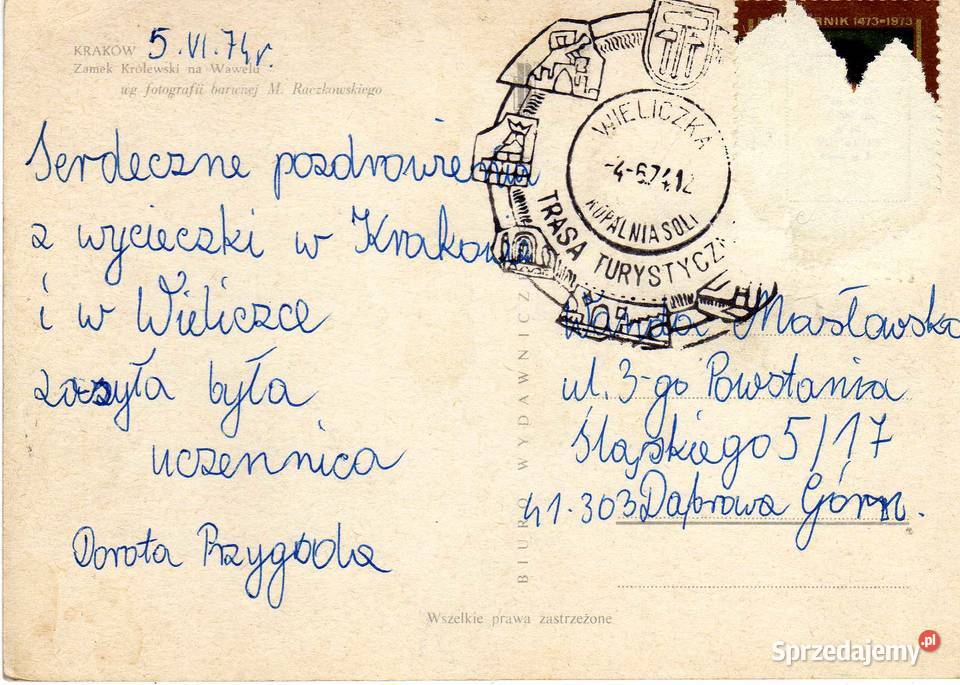 KRAKÓW 5.VI.74r.
Zamek Królewski na Wawelu
wg fotografii barwnej M. Raczkowskiego
Serdeczne pozdrowienia
z wycieczki w Krakowie
i w Wieliczce
zasyła była
uczennica
Dorota Przygoda
KOPERNIK 1473-1973
WIELICZKA
-4-6.74.12
KOPALNIA SOLI
TRASA TURYSTYCZNA
BIURO WYDAWNICZ
Wanda Masławska
ul. 3-go Powstania
Śląskiego 5/17
41-303 Dąbrowa Górn.
Wszelkie prawa zastrzeżone
Sprzedajemy.pl